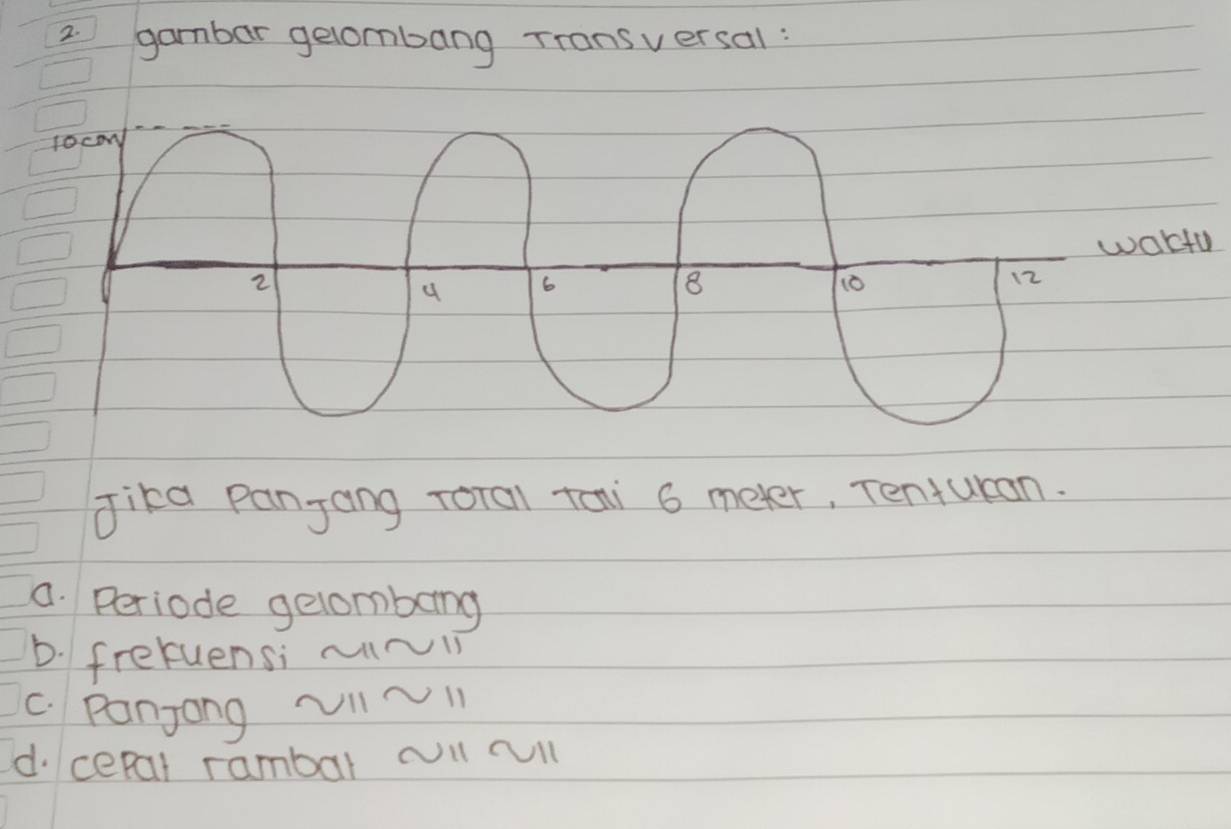 2. gambar gelombang Transversal:
10cm
waktu
2 4 6 8 10 12
Jika Panjang Total Tali 6 meter, Tentukan.
a. Periode gelombang
b. frekuensi ~"~"
c. Panjang ~"~"
d. cepat rambat ~"~"